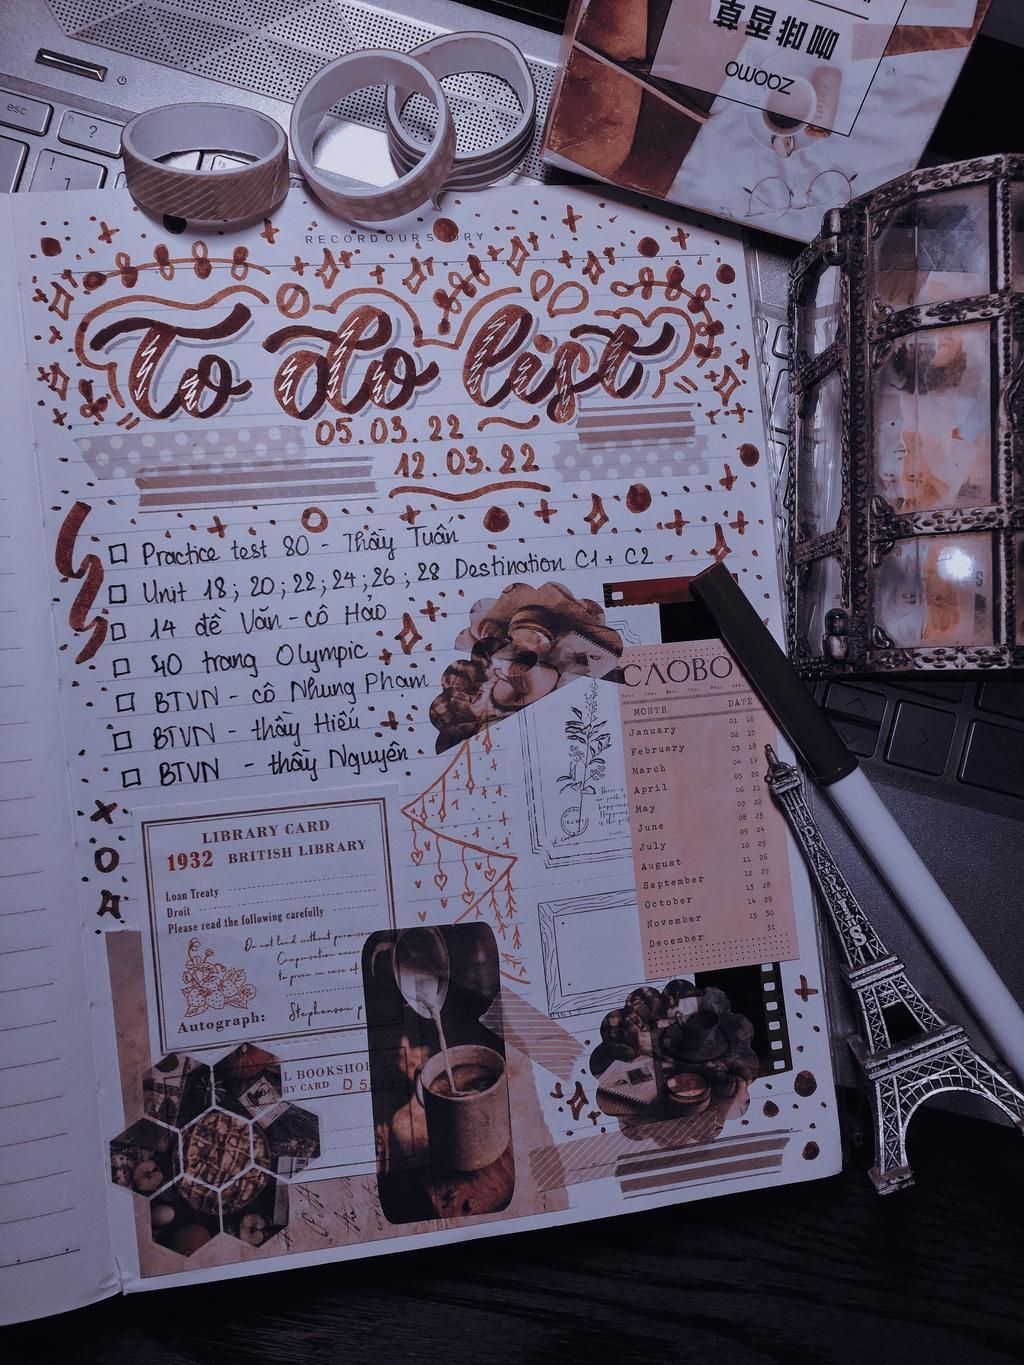 esc
?
!
1
咖啡香草
zoomo
RECORD OUR STORY
To do list
05.03.22
12.03.22
Practice test 80 - Thầy Tuấn
Unit 18; 20; 22; 24; 26; 28 Destination C1 + C2
14 đề Văn - cô Hảo
40 trang Olympic
BTVN - cô Nhung Phạm
BTVN - thầy Hiếu
BTVN - thầy Nguyên
СЛОВО
MONTH DATE
January 01 16
February 02 17
March 03 18
April 04 19
May 05 20
June 06 21
July 07 22
August 08 23
September 09 24
October 10 25
November 11 26
December 12 27
13 28
14 29
15 30
31
LIBRARY CARD
1932 BRITISH LIBRARY
Loan Treaty
Droit
Please read the following carefully
Do not lend without permission
Compensation
to prove in case of
Autograph: Stephenson
L BOOKSHOP
RY CARD D 5
PARIS